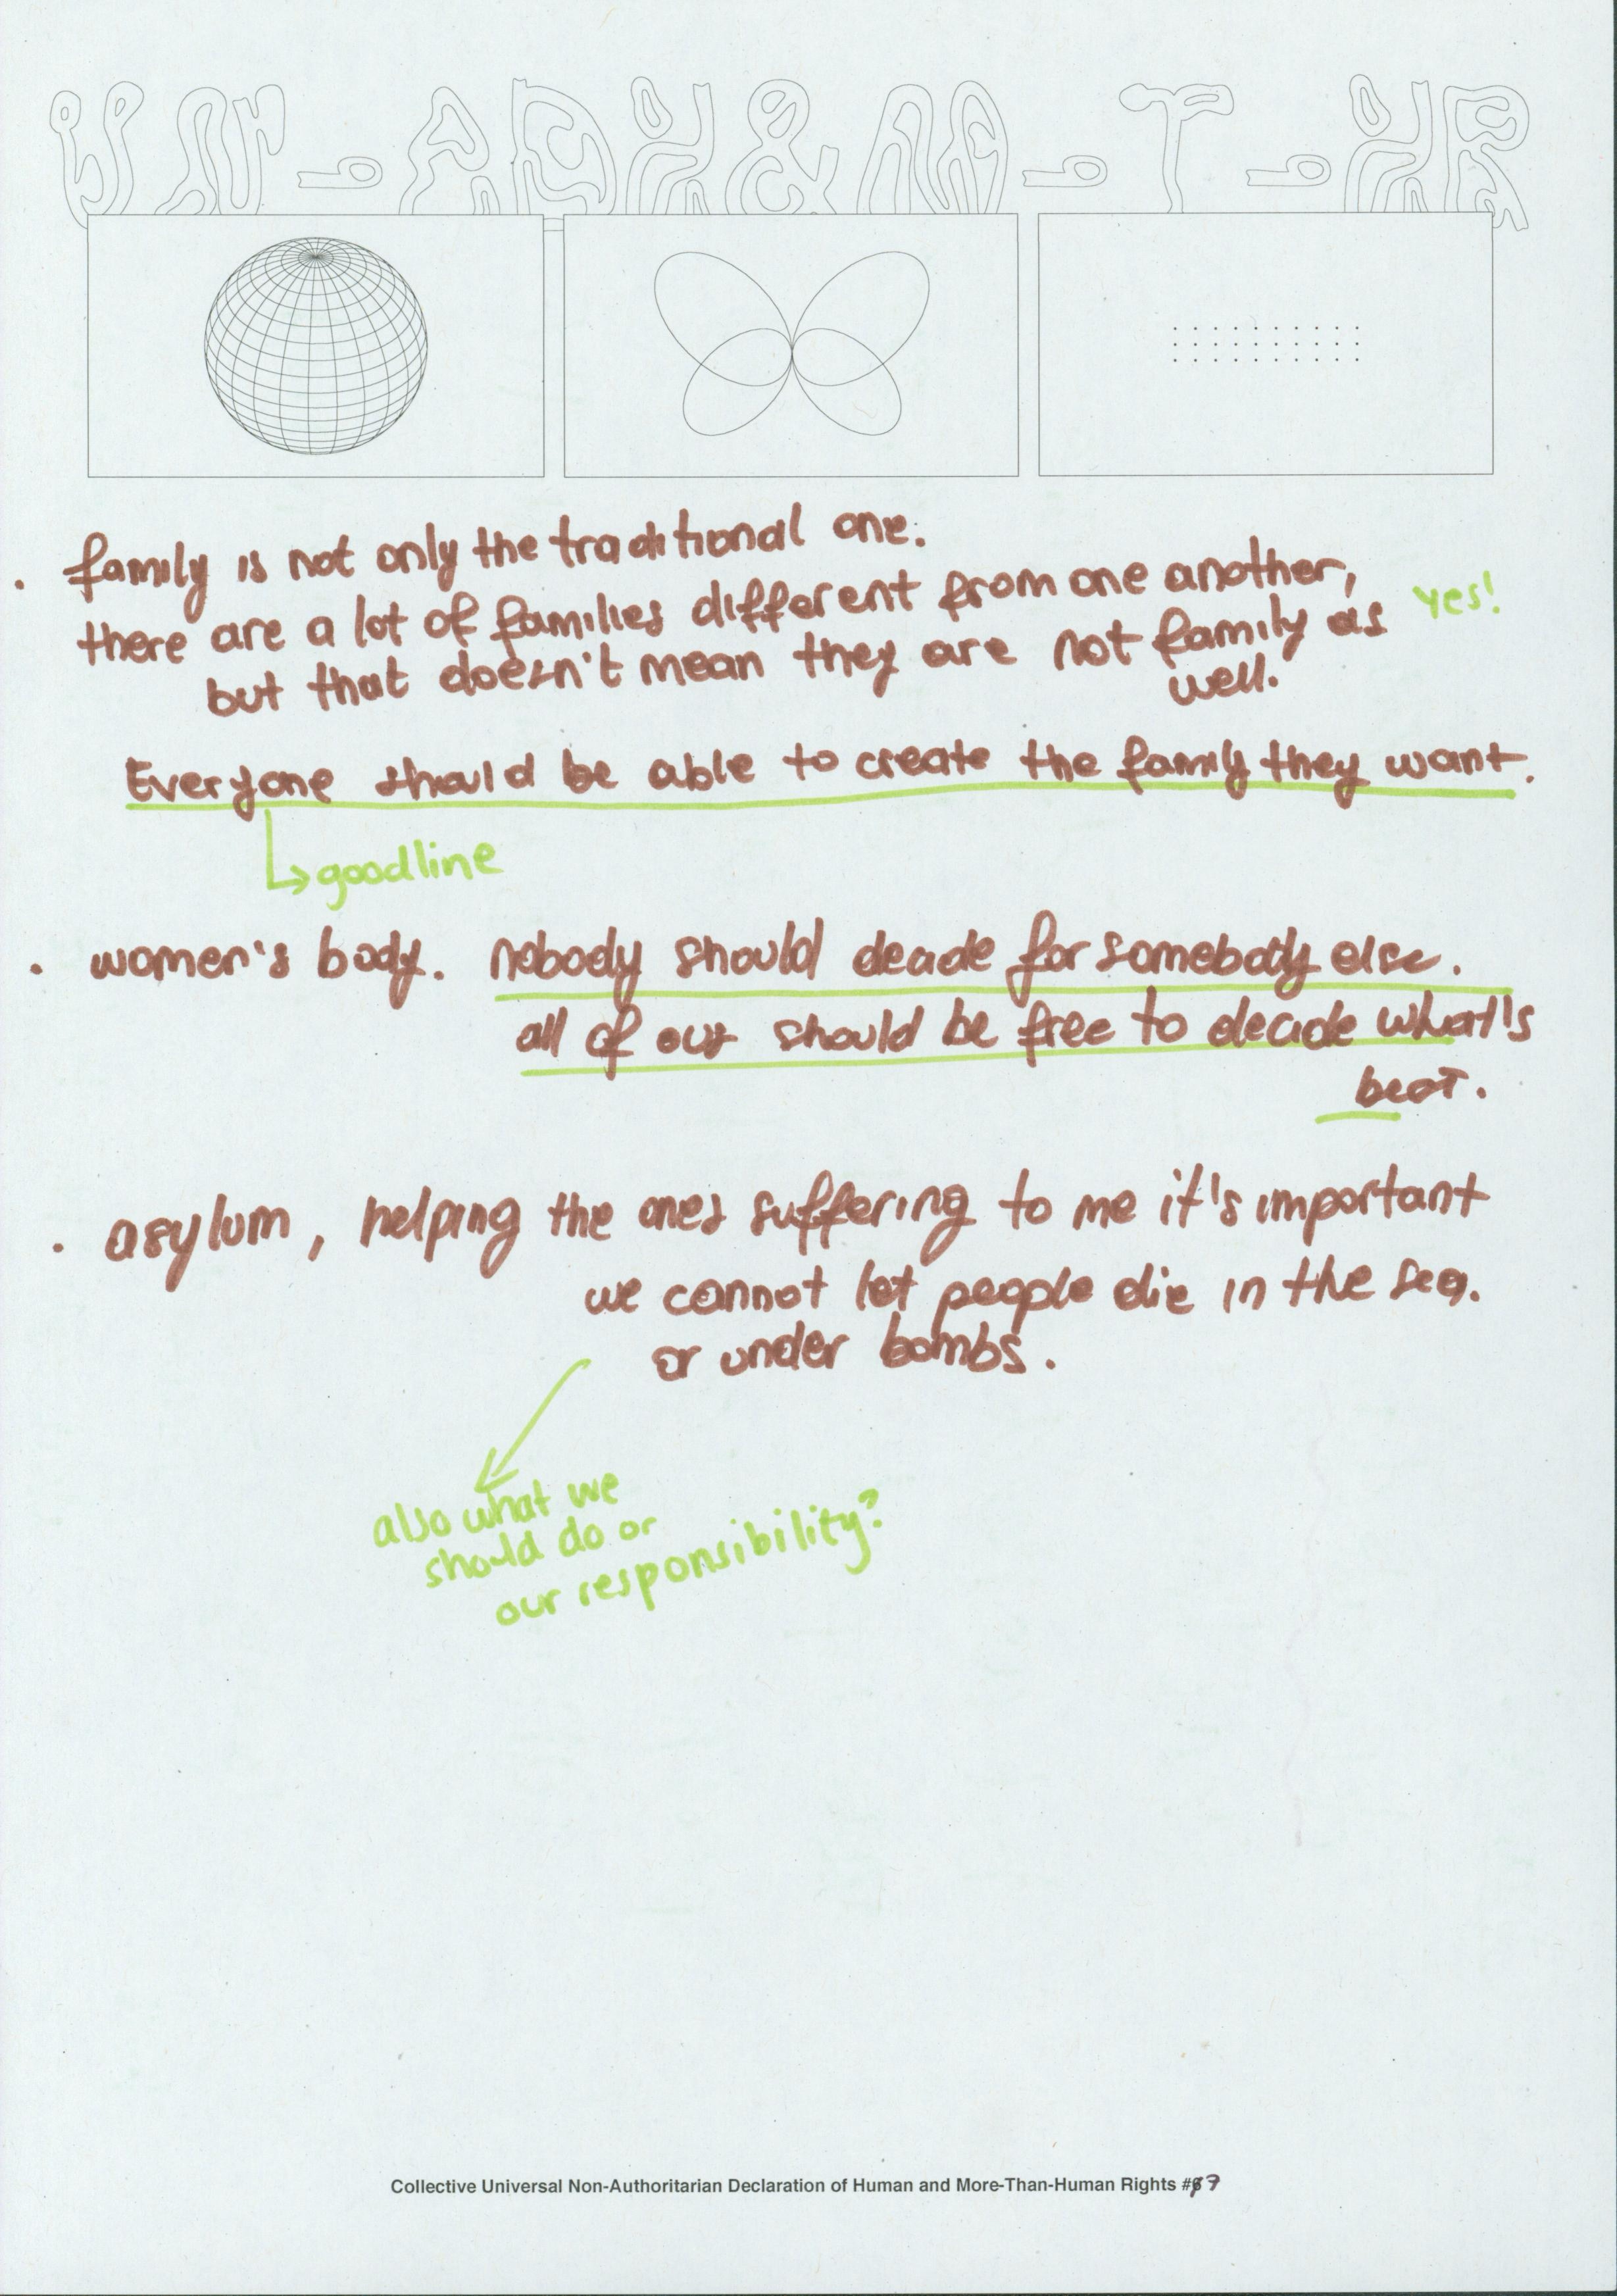 UN-ADH&M-T-HR
. family is not only the traditional one.
there are a lot of families different from one another,
but that doesn't mean they are not family as
well.
yes!
Everyone should be able to create the family they want.
↳ goodline
. women's body. nobody should decide for somebody else.
all of our should be free to decide what's
best.
. asylum, helping the ones suffering to me it's important
we cannot let people die in the sea.
or under bombs.
also what we
should do or
our responsibility?
Collective Universal Non-Authoritarian Declaration of Human and More-Than-Human Rights #7